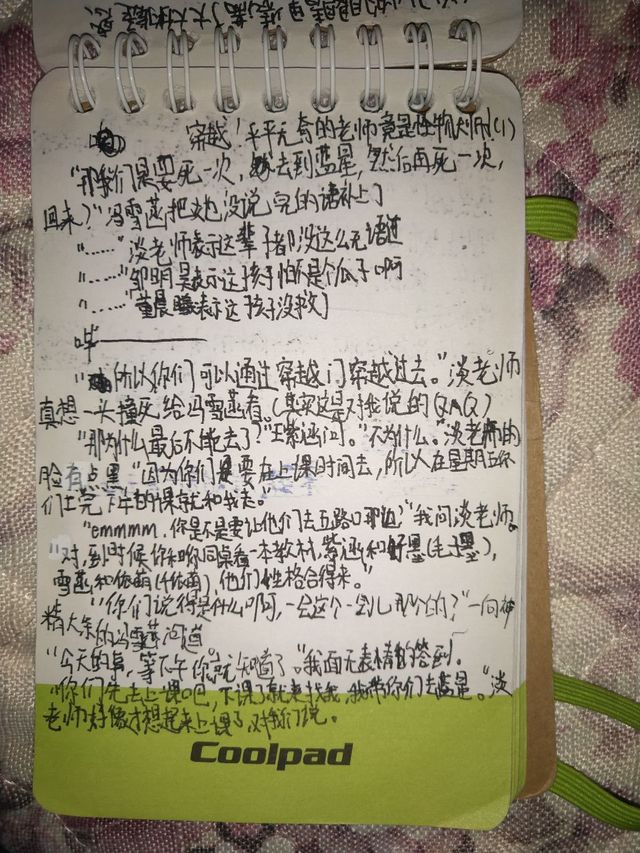 穿越!平平无奇的老师竟是怪物大师(1)
"那我们是要死一次,然去到蓝星,然后再死一次,
回来?"冯雪燕把她没说完的话补上了
"……"淡老师表示这辈子都没这么无语过
"……"邹明昊表示这孩子怕不是个瓜子啊
"……"董晨曦表示这孩子没救了
哔————
"所以你们可以通过穿越门穿越过去。"淡老师
真想一头撞死给冯雪燕看。(其实这是对我说的QAQ)
"那为什么最后不能去了?"王紫涵问。"不为什么。"淡老师的
脸有点黑"因为你们是要在上课时间去,所以在星期五你
们上完下午的课就和我走。"
"emmmm,你是不是要让他们去五路口那边"我问淡老师。
"对,到时候你和你同桌看一本教材,紫涵和 墨(毛 墨),
雪燕和依萌( 依萌),他们性格合得来。"
"你们说得是什么啊,一会这个一会儿那个的?"一向神
精大条的冯雪燕问道
"今天的事,等下午你就知道了。"我面无表情的答到。
"你们先去上课吧,下课了就来找我,我带你们去蓝星。"淡
老师好像才想起来上课了,对我们说。
Coolpad